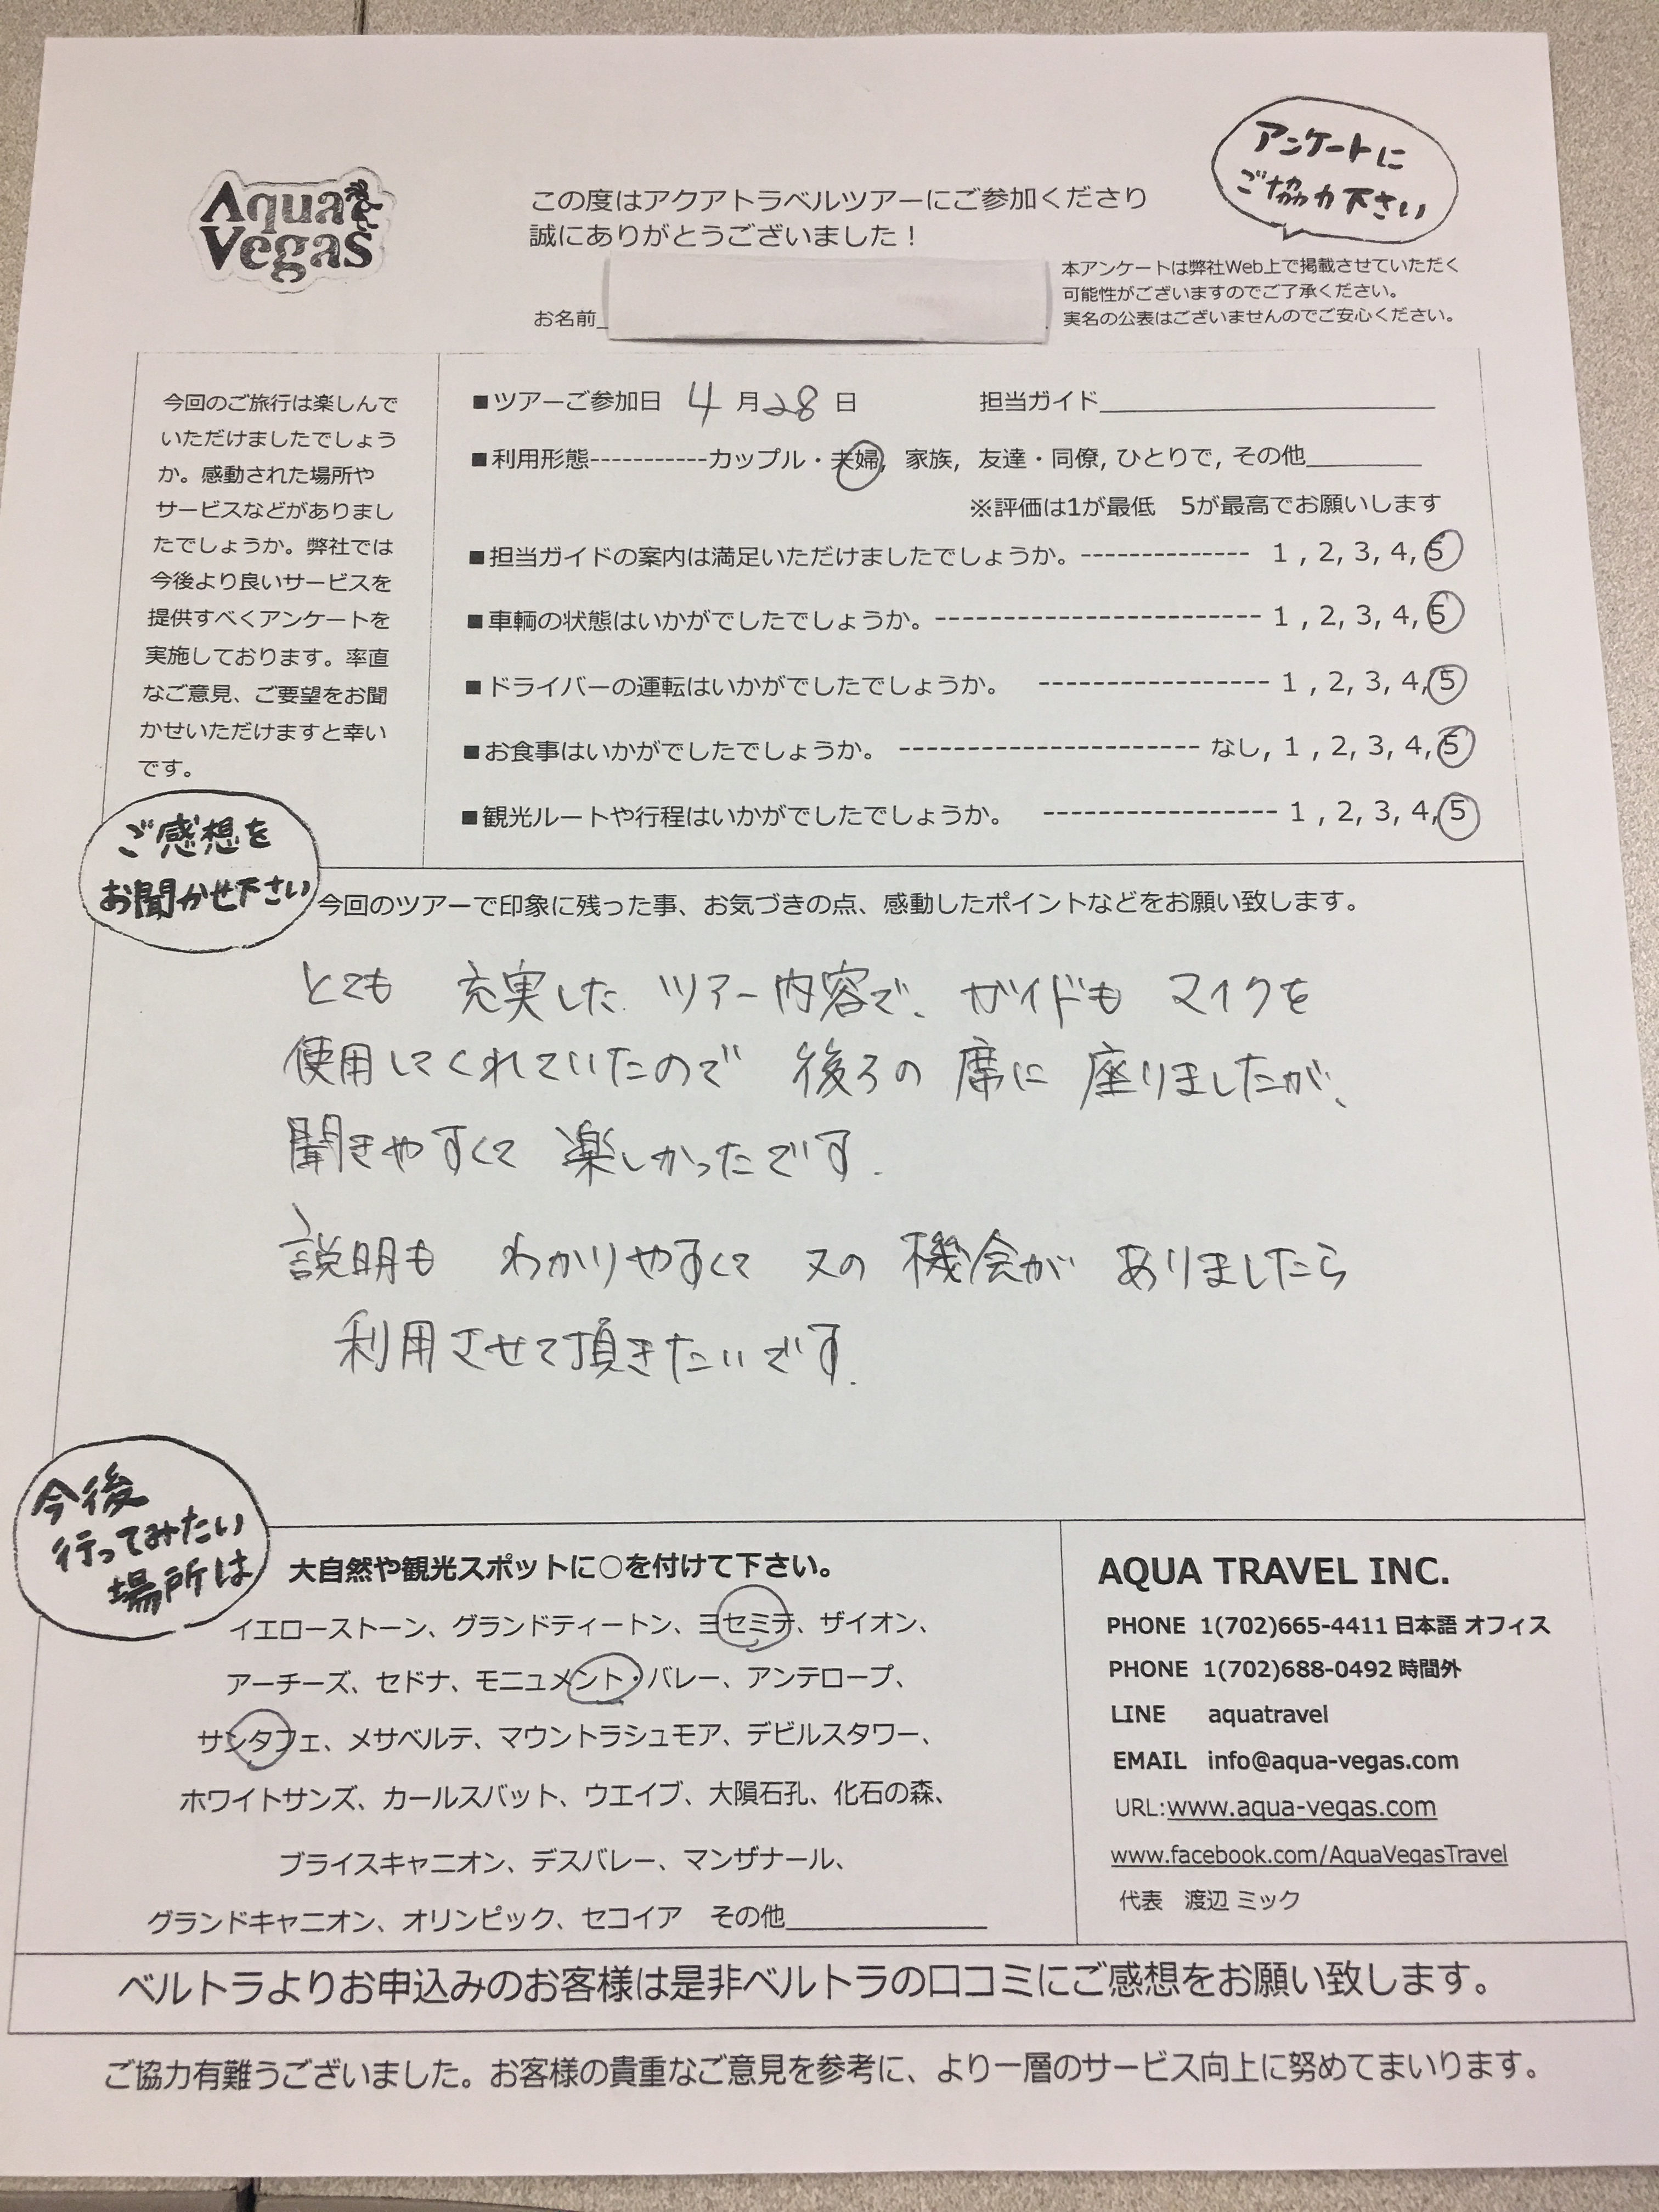 Aqua
Vegas
この度はアクアトラベルツアーにご参加くださり
誠にありがとうございました！
アンケートに
ご協力下さい
本アンケートは弊社Web上で掲載させていただく
可能性がございますのでご了承ください。
実名の公表はございませんのでご安心ください。
お名前
今回のご旅行は楽しんで
いただけましたでしょう
か。感動された場所や
サービスなどがありまし
たでしょうか。弊社では
今後より良いサービスを
提供すべくアンケートを
実施しております。率直
なご意見、ご要望をお聞
かせいただけますと幸い
です。
■ツアーご参加日 4月28日 担当ガイド
■利用形態-----------カップル・夫婦, 家族, 友達・同僚, ひとりで, その他
※評価は1が最低 5が最高でお願いします
■担当ガイドの案内は満足いただけましたでしょうか。------------- 1 , 2, 3, 4, 5
■車輌の状態はいかがでしたでしょうか。------------------------- 1 , 2, 3, 4, 5
■ドライバーの運転はいかがでしたでしょうか。 ----------------- 1 , 2, 3, 4, 5
■お食事はいかがでしたでしょうか。 ---------------------- なし, 1 , 2, 3, 4, 5
■観光ルートや行程はいかがでしたでしょうか。 ----------------- 1 , 2, 3, 4, 5
ご感想を
お聞かせ下さい
今回のツアーで印象に残った事、お気づきの点、感動したポイントなどをお願い致します。
とても 充実した ツアー内容で、ガイドも マイクを
使用してくれていたので 後ろの 席に 座りましたが、
聞きやすくて 楽しかったです.
説明も わかりやすくて 又の 機会が ありましたら
利用させて頂きたいです.
今後
行ってみたい
場所は
大自然や観光スポットに○を付けて下さい。
イエローストーン、グランドティートン、ヨセミテ、ザイオン、
アーチーズ、セドナ、モニュメント・バレー、アンテロープ、
サンタフェ、メサベルテ、マウントラシュモア、デビルスタワー、
ホワイトサンズ、カールスバット、ウエイブ、大隕石孔、化石の森、
ブライスキャニオン、デスバレー、マンザナール、
グランドキャニオン、オリンピック、セコイア その他
AQUA TRAVEL INC.
PHONE 1(702)665-4411 日本語 オフィス
PHONE 1(702)688-0492 時間外
LINE aquatravel
EMAIL info@aqua-vegas.com
URL:www.aqua-vegas.com
www.facebook.com/AquaVegasTravel
代表 渡辺 ミック
ベルトラよりお申込みのお客様は是非ベルトラの口コミにご感想をお願い致します。
ご協力有難うございました。お客様の貴重なご意見を参考に、より一層のサービス向上に努めてまいります。